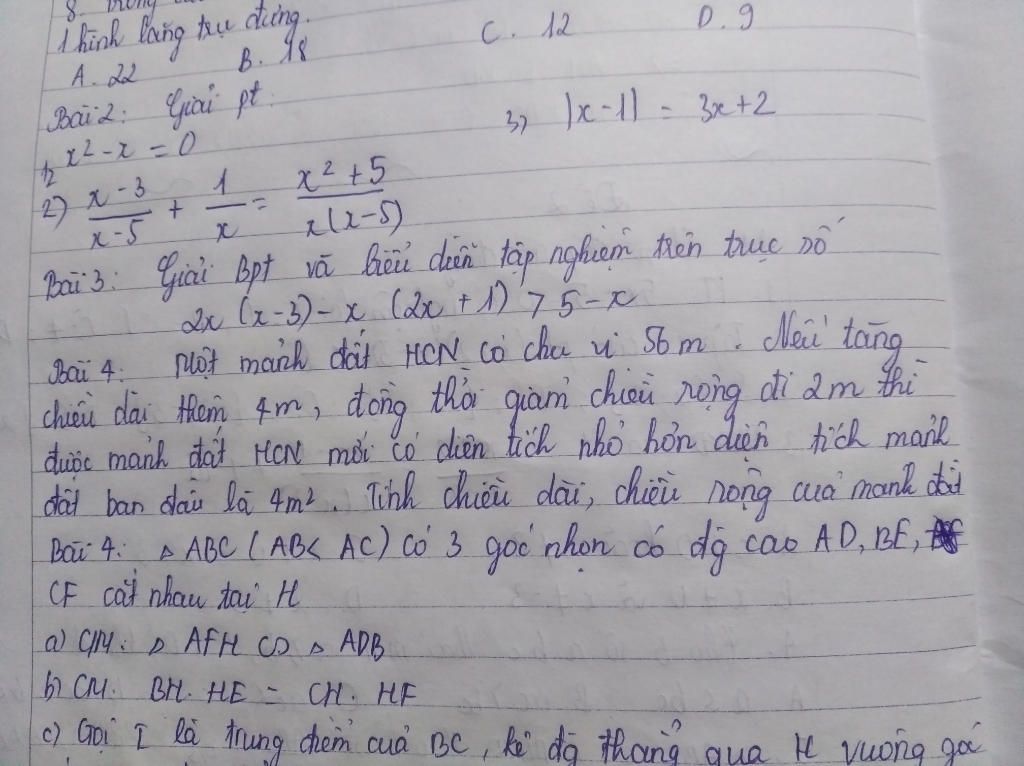 8. trong
1 hình lăng trụ đứng.
A. 22 B. 18 C. 12 D. 9
Bài 2: Giải pt:
1) x² - x = 0 3) |x - 1| = 3x + 2
2) (x - 3)/(x - 5) + 1/x = (x² + 5)/(x(x - 5))
Bài 3: Giải Bpt và biểu diễn tập nghiệm trên trục số
2x (x - 3) - x (2x + 1) > 5 - x
Bài 4: Một mảnh đất HCN có chu vi 56 m. Nếu tăng
chiều dài thêm 4m, đồng thời giảm chiều rộng đi 2m thì
được mảnh đất HCN mới có diện tích nhỏ hơn diện tích mảnh
đất ban đầu là 4m². Tính chiều dài, chiều rộng của mảnh đất
Bài 4: △ ABC (AB < AC) có 3 góc nhọn có đg cao AD, BE,
CF cắt nhau tại H
a) CM: △ AFH ∽ △ ADB
b) CM: BH. HE = CH. HF
c) Gọi I là trung điểm của BC, kẻ đg thẳng qua H vuông góc